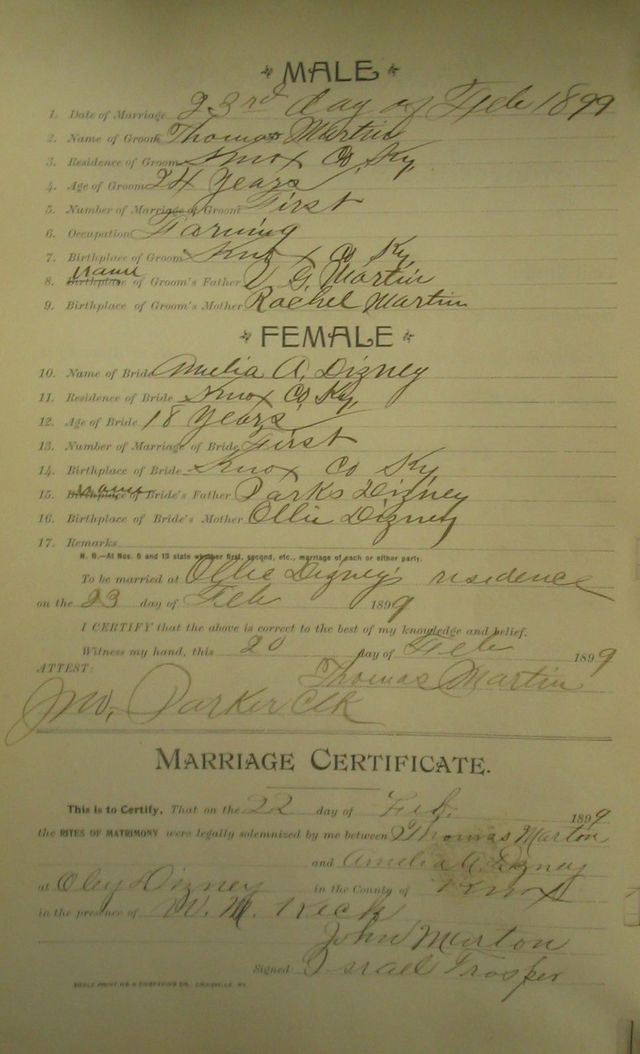 MALE
1. Date of Marriage 23rd day of Feb 1899
2. Name of Groom Thomas Martin
3. Residence of Groom Knox Co, Ky,
4. Age of Groom 24 years
5. Number of Marriage of Groom First
6. Occupation Farming
7. Birthplace of Groom Knox Co Ky,
name
8. Birthplace of Groom's Father G. Martin
9. Birthplace of Groom's Mother Rachel Martin
FEMALE
10. Name of Bride Amelia A. Dizney
11. Residence of Bride Knox Co, Ky
12. Age of Bride 18 Years,
13. Number of Marriage of Bride First
14. Birthplace of Bride Knox Co Ky
name
15. Birthplace of Bride's Father Parks Dizney
16. Birthplace of Bride's Mother Ollie Dizney
17. Remarks
N. B.—At Nos. 5 and 13 state whether first, second, etc., marriage of each or either party.
To be married at Ollie Dizney's residence
on the 23 day of Feb 1899
I CERTIFY that the above is correct to the best of my knowledge and belief.
Witness my hand, this 20 day of Feb 1899
ATTEST: Thomas Martin
Jno, Parker Clk
MARRIAGE CERTIFICATE.
This is to Certify, That on the 22 day of Feb. 1899
the RITES OF MATRIMONY were legally solemnized by me between Thomas Marton
and Amelia A. Dizney
at Oley Dizney in the County of Knox
in the presence of W. M. Keck
John Marton
Signed Israel Trosper